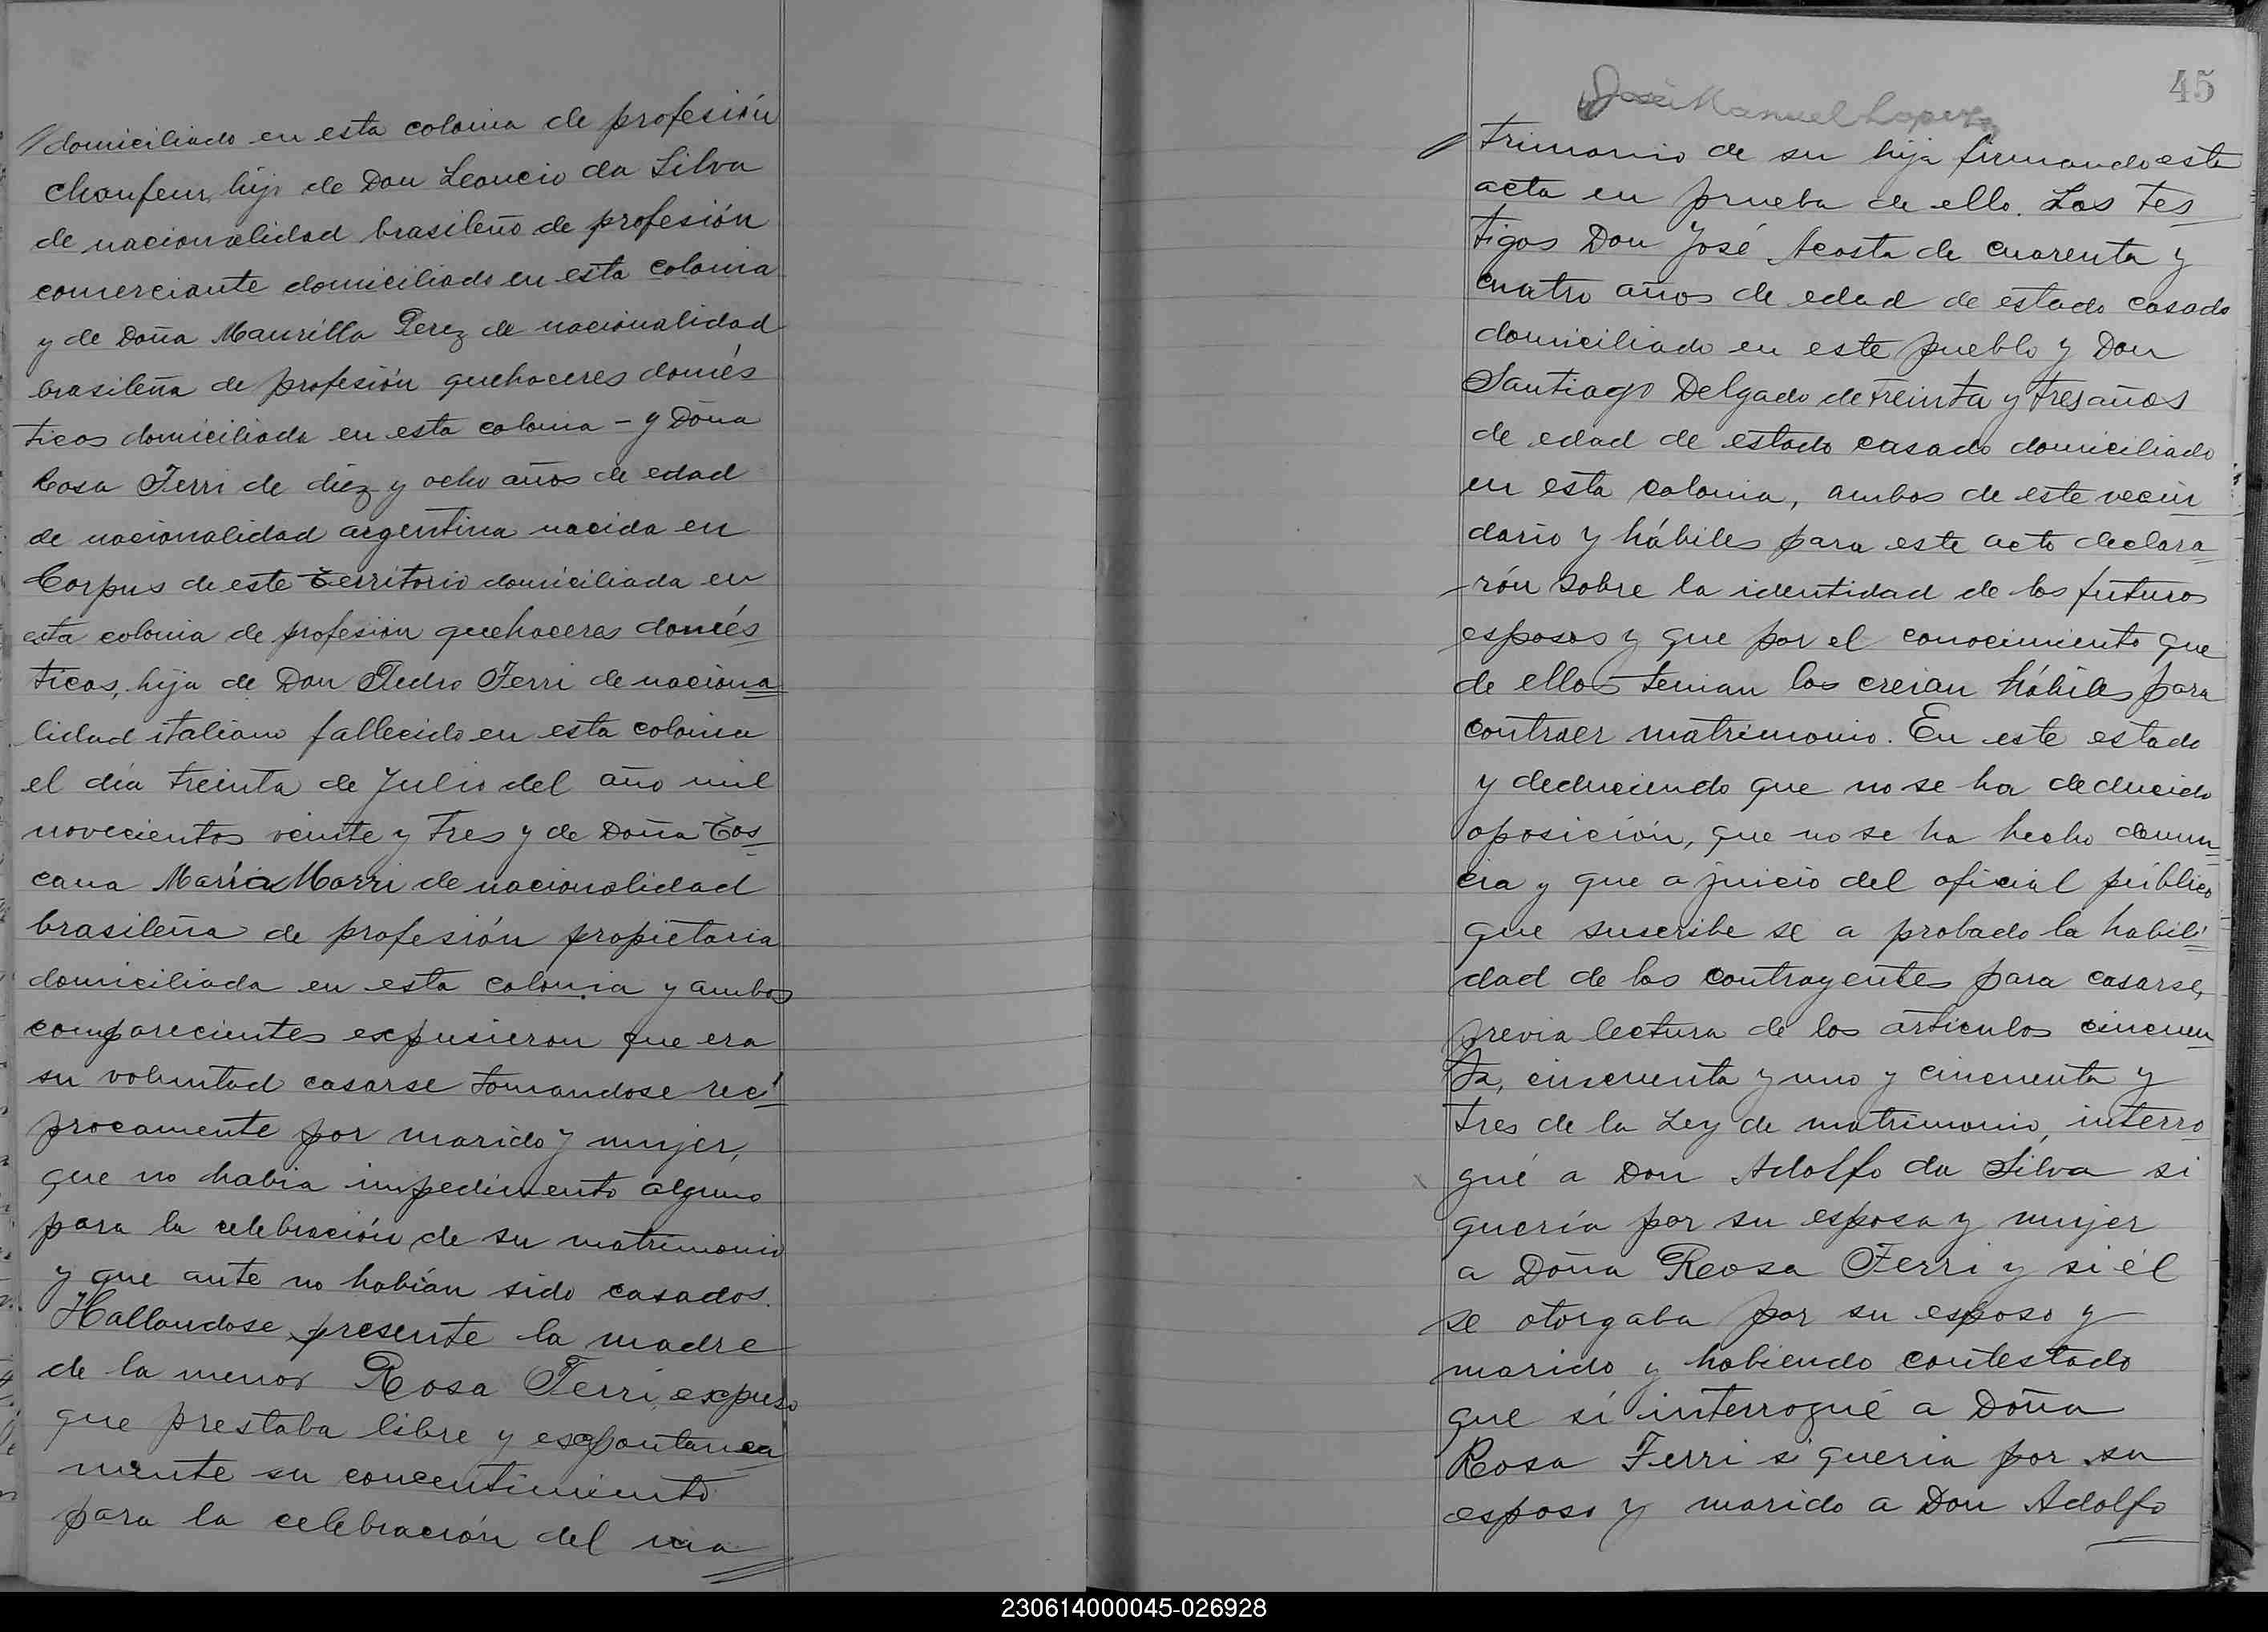 domiciliado en esta colonia de profesión
chaufeur, hijo de Don Leoncio da Silva
de nacionalidad brasileño de profesión
comerciante domiciliado en esta colonia
y de Doña Maurilla Perez de nacionalidad
brasileña de profesión quehaceres domés
ticos domiciliada en esta colonia - y Doña
Rosa Ferri de diez y ocho años de edad
de nacionalidad argentina nacida en
Corpus de este territorio domiciliada en
esta colonia de profesión quehaceres domés
ticos, hija de Don Pedro Ferri de naciona
lidad italiano fallecido en esta colonia
el día treinta de Julio del año mil
novecientos veinte y tres y de Doña Tos
cana María Marri de nacionalidad
brasileña de profesión propietaria
domiciliada en esta colonia y ambos
comparecientes expusieron que era
su voluntad casarse tomandose recí
procamente por marido y mujer,
que no habia impedimento alguno
para la celebración de su matrimonio
y que ante no habían sido casados.
Hallandose presente la madre
de la menor Rosa Ferri, expuso
que prestaba libre y espontanea
mente su concentimiento
para la celebración del ma
45
José Manuel Lopez
trimonio de su hija firmando esta
acta en prueba de ello. Los tes
tigos Don José Acosta de cuarenta y
cuatro años de edad de estado casado
domiciliado en este pueblo y Don
Santiago Delgado de treinta y tres años
de edad de estado casado domiciliado
en esta colonia, ambos de este vecin
dario y hábiles para este acto declara
rón sobre la identidad de los futuros
esposos y que por el conocimiento que
de ellos tenian los creian hábiles para
contraer matrimonio. En este estado
y deduciendo que no se ha deducido
oposición, que no se ha hecho denun
cia y que a juicio del oficial público
que suscribe se a probado la habili
dad de los contrayentes para casarse,
previa lectura de los articulos cincuen
ta, cincuenta y uno y cincuenta y
tres de la Ley de matrimonio, interro
gué a Don Adolfo da Silva si
quería por su esposa y mujer
a Doña Rosa Ferri y si él
se otorgaba por su esposo y
marido y habiendo contestado
que sí interrogué a Doña
Rosa Ferri si queria por su
esposo y marido a Don Adolfo
230614000045-026928